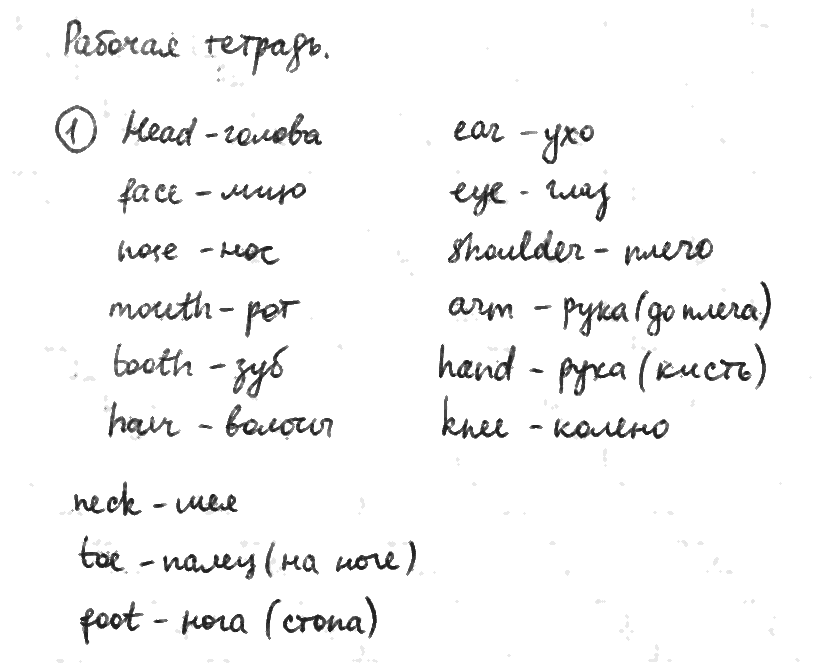 Рабочая тетрадь.
① Head - голова
face - лицо
nose - нос
mouth - рот
tooth - зуб
hair - волосы
ear - ухо
eye - глаз
shoulder - плечо
arm - рука (до плеча)
hand - рука (кисть)
knee - колено
neck - шея
toe - палец (на ноге)
foot - нога (стопа)